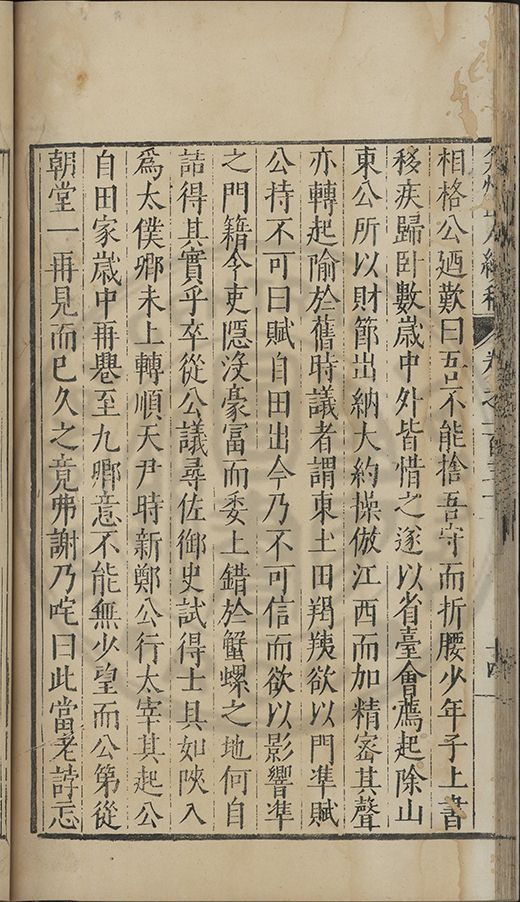 相格公廼歎曰吾不能捨吾守而折腰少年子上書
移疾歸卧數歲中外皆惜之遂以省臺會薦起除山
東公所以財節出納大約操倣江西而加精密其聲
亦轉起隃於舊時議者謂東土田羯羠欲以門準賦
公持不可曰賦自田出今乃不可信而欲以影響準
之門籍令吏隱沒豪富而委上錯於蟹螺之地何自
詰得其實乎卒從公議尋佐御史試得士具如陜入
爲太僕卿未上轉順天尹時新鄭公行太宰其起公
自田家歲中再舉至九卿意不能無少望而公第從
朝堂一再見而已久之竟弗謝乃咤曰此當老誖忘